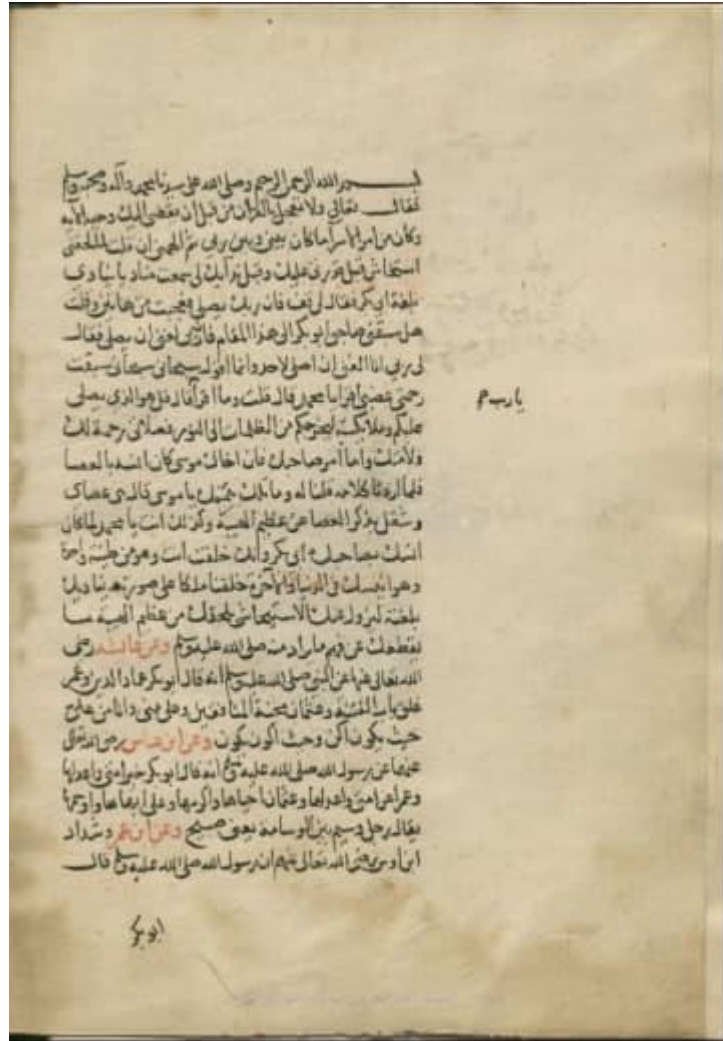 بسم الله الرحمن الرحيم وصلى الله على سيدنا محمد وآله وصحبه وسلم
تعالى ولا تعجل بالقرآن من قبل ان يقضى اليك وحيه الآية
وكان من امر الاسرا ما كان بيني وبين ربي ثم ان قلت اللهم
استيحاش قبل قدومي عليك سمعت مناديا ينادي
بلغة ابي بكر فقال لي قف فان ربك يصلي فعجبت من هاتين وقلت
هل سبقني صاحبي ابو بكر الى هذا المقام وان ربي لغني ان يصلي فقال
لي ربي انا الغني ان اصلي لاحد وانما اقول سبحاني سبحاني سبقت
رحمتي غضبي اقرا يا محمد قال قلت وما اقرا قال قل هو الذي يصلي
يا رب
عليكم وملايكته ليخرجكم من الظلمات الى النور فصلاتي رحمة لك
ولامتك واما امر صاحبك فان اخاك موسى كان انسه بالعصا
فلما اردنا كلامه قلنا له وما تلك بيمينك يا موسى قال هي عصاي
وشغل بذكر العصا عن عظيم الهيبة وكذلك انت يا محمد لما كان
انسك بصاحبك ابي بكر وانك خلقت انت وهو من طينة واحدة
وهو انيسك في الدنيا والآخرة خلقنا ملكا على صورته يناديك
بلغته ليزول عنك الاستيحاش لما يلحقك من عظيم الهيبة ما
يقطعك عن فهم ما يراد منك صلى الله عليه وسلم وعن عائشة رضي
الله تعالى عنها عن النبي صلى الله عليه وسلم انه قال ابو بكر عماد الدين وعمر
غلق باب الفتنة وعثمان محنة المنافقين وعلي مني وانا من علي
حيث يكون اكن وحيث اكون يكون وعن ابن عباس رضي الله تعالى
عنهما عن رسول الله صلى الله عليه وسلم انه قال ابو بكر خير امتي
وعمر اعز امتي واعدلها وعثمان احياها واكرمها وعلي
يقال رجل وسيم بين الوسامة يعني صبيح وعن ابن عمر وشداد
ابن اوس رضي الله تعالى عنهم ان رسول الله صلى الله عليه وسلم قال
ابو بكر